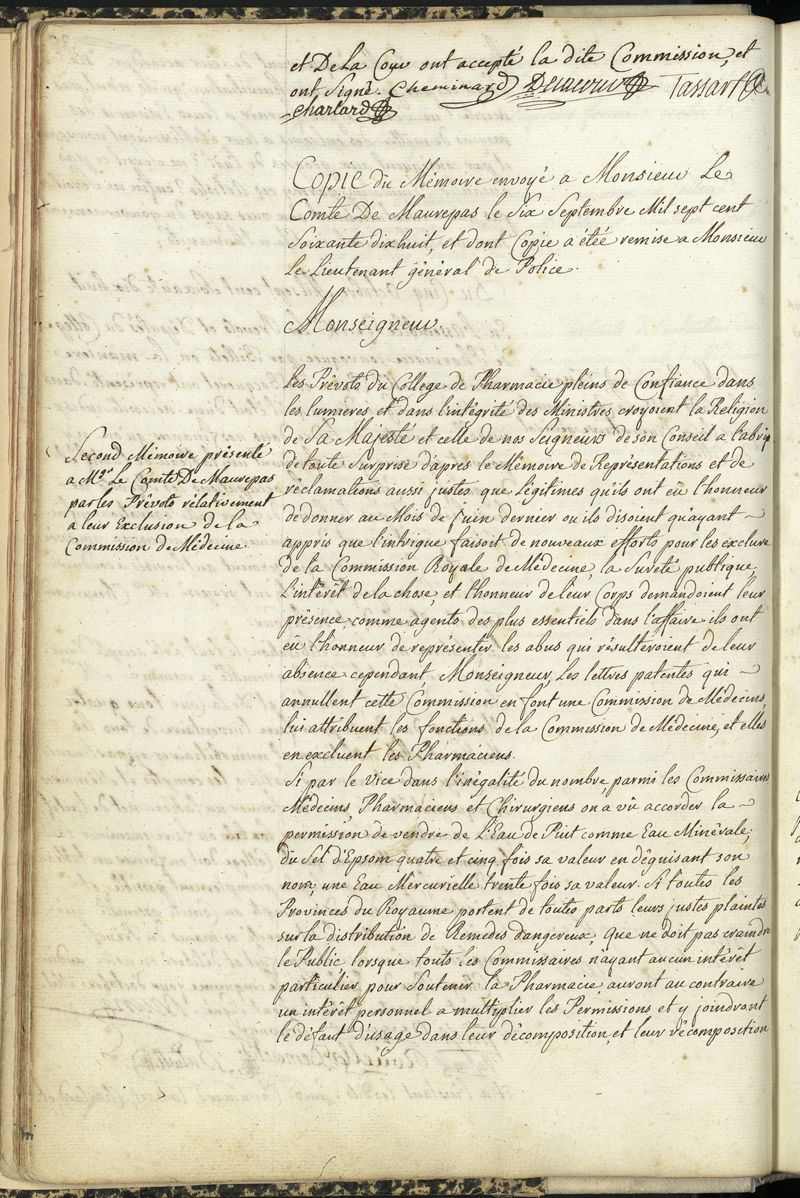 et De la Cour ont accepté la dite Commission, et
ont signé. Cheminard Delacour Tassart
Charlard
Copie du Mémoire envoyé a Monsieur Le
Comte De Maurepas le six Septembre Mil sept cent
soixante dixhuit, et dont Copie a étée remise a Monsieur
le Lieutenant général de Police.
Monseigneur
Second Mémoire présenté
a Mgr. Le Comte De Maurepas
par les Prévots rélativement
a leur Exclusion de la
Commission de Médecine.
les Prévots du College de Pharmacie pleins de Confiance dans
les lumieres et dans l'intégrité des Ministres croyoient la Religion
de Sa Majesté et celle de nos Seigneurs de son Conseil a l'abrip
de toute Surprise d'apres le Mémoire de Représentations et de
réclamations aussi justes que légitimes qu'ils ont eü l'honneur
de donner au Mois de Juin dernier ou ils disoient qu'ayant
appris que l'intrigue faisoit de nouveaux efforts pour les exclure
de la Commission Royale de Médecine, la Sureté publique,
l'intérêt de la chose, et l'honneur de leur Corps demandoient leur
présence, comme agents des plus essentiels dans l'affaire ils ont
eü l'honneur de représenter les abus qui résulteroient de leur
absence cependant, Monseigneur, Les lettres patentes qui
annullent cette Commission en font une Commission de Médecins,
lui attribuent les fonctions de la Commission de Médecine, et elles
en excluent les Pharmaciens.
Si par le vice dans l'inégalité du nombre, parmi les Commissaires
Médecins, Pharmaciens et Chirurgiens on a vü accorder la
permission de vendre de l'Eau de Puit comme Eau Minérale;
du Sel d'Epsom quatre et cinq fois sa valeur en déguisant son
nom; une Eau Mércurielle trente fois sa valeur. Si toutes les
Provinces du Royaume portent de toutes parts leurs justes plaintes
sur la distribution de Remedes dangereux, que ne doit pas craindre
le Public lorsque touts les Commissaires n'ayant aucun intérêt
particulier pour Soutenir la Pharmacie, auront au contraire
un intérêt personnel a multiplier les Permissions et y joindront
le défaut d'usage dans leur décomposition, et leur récomposition